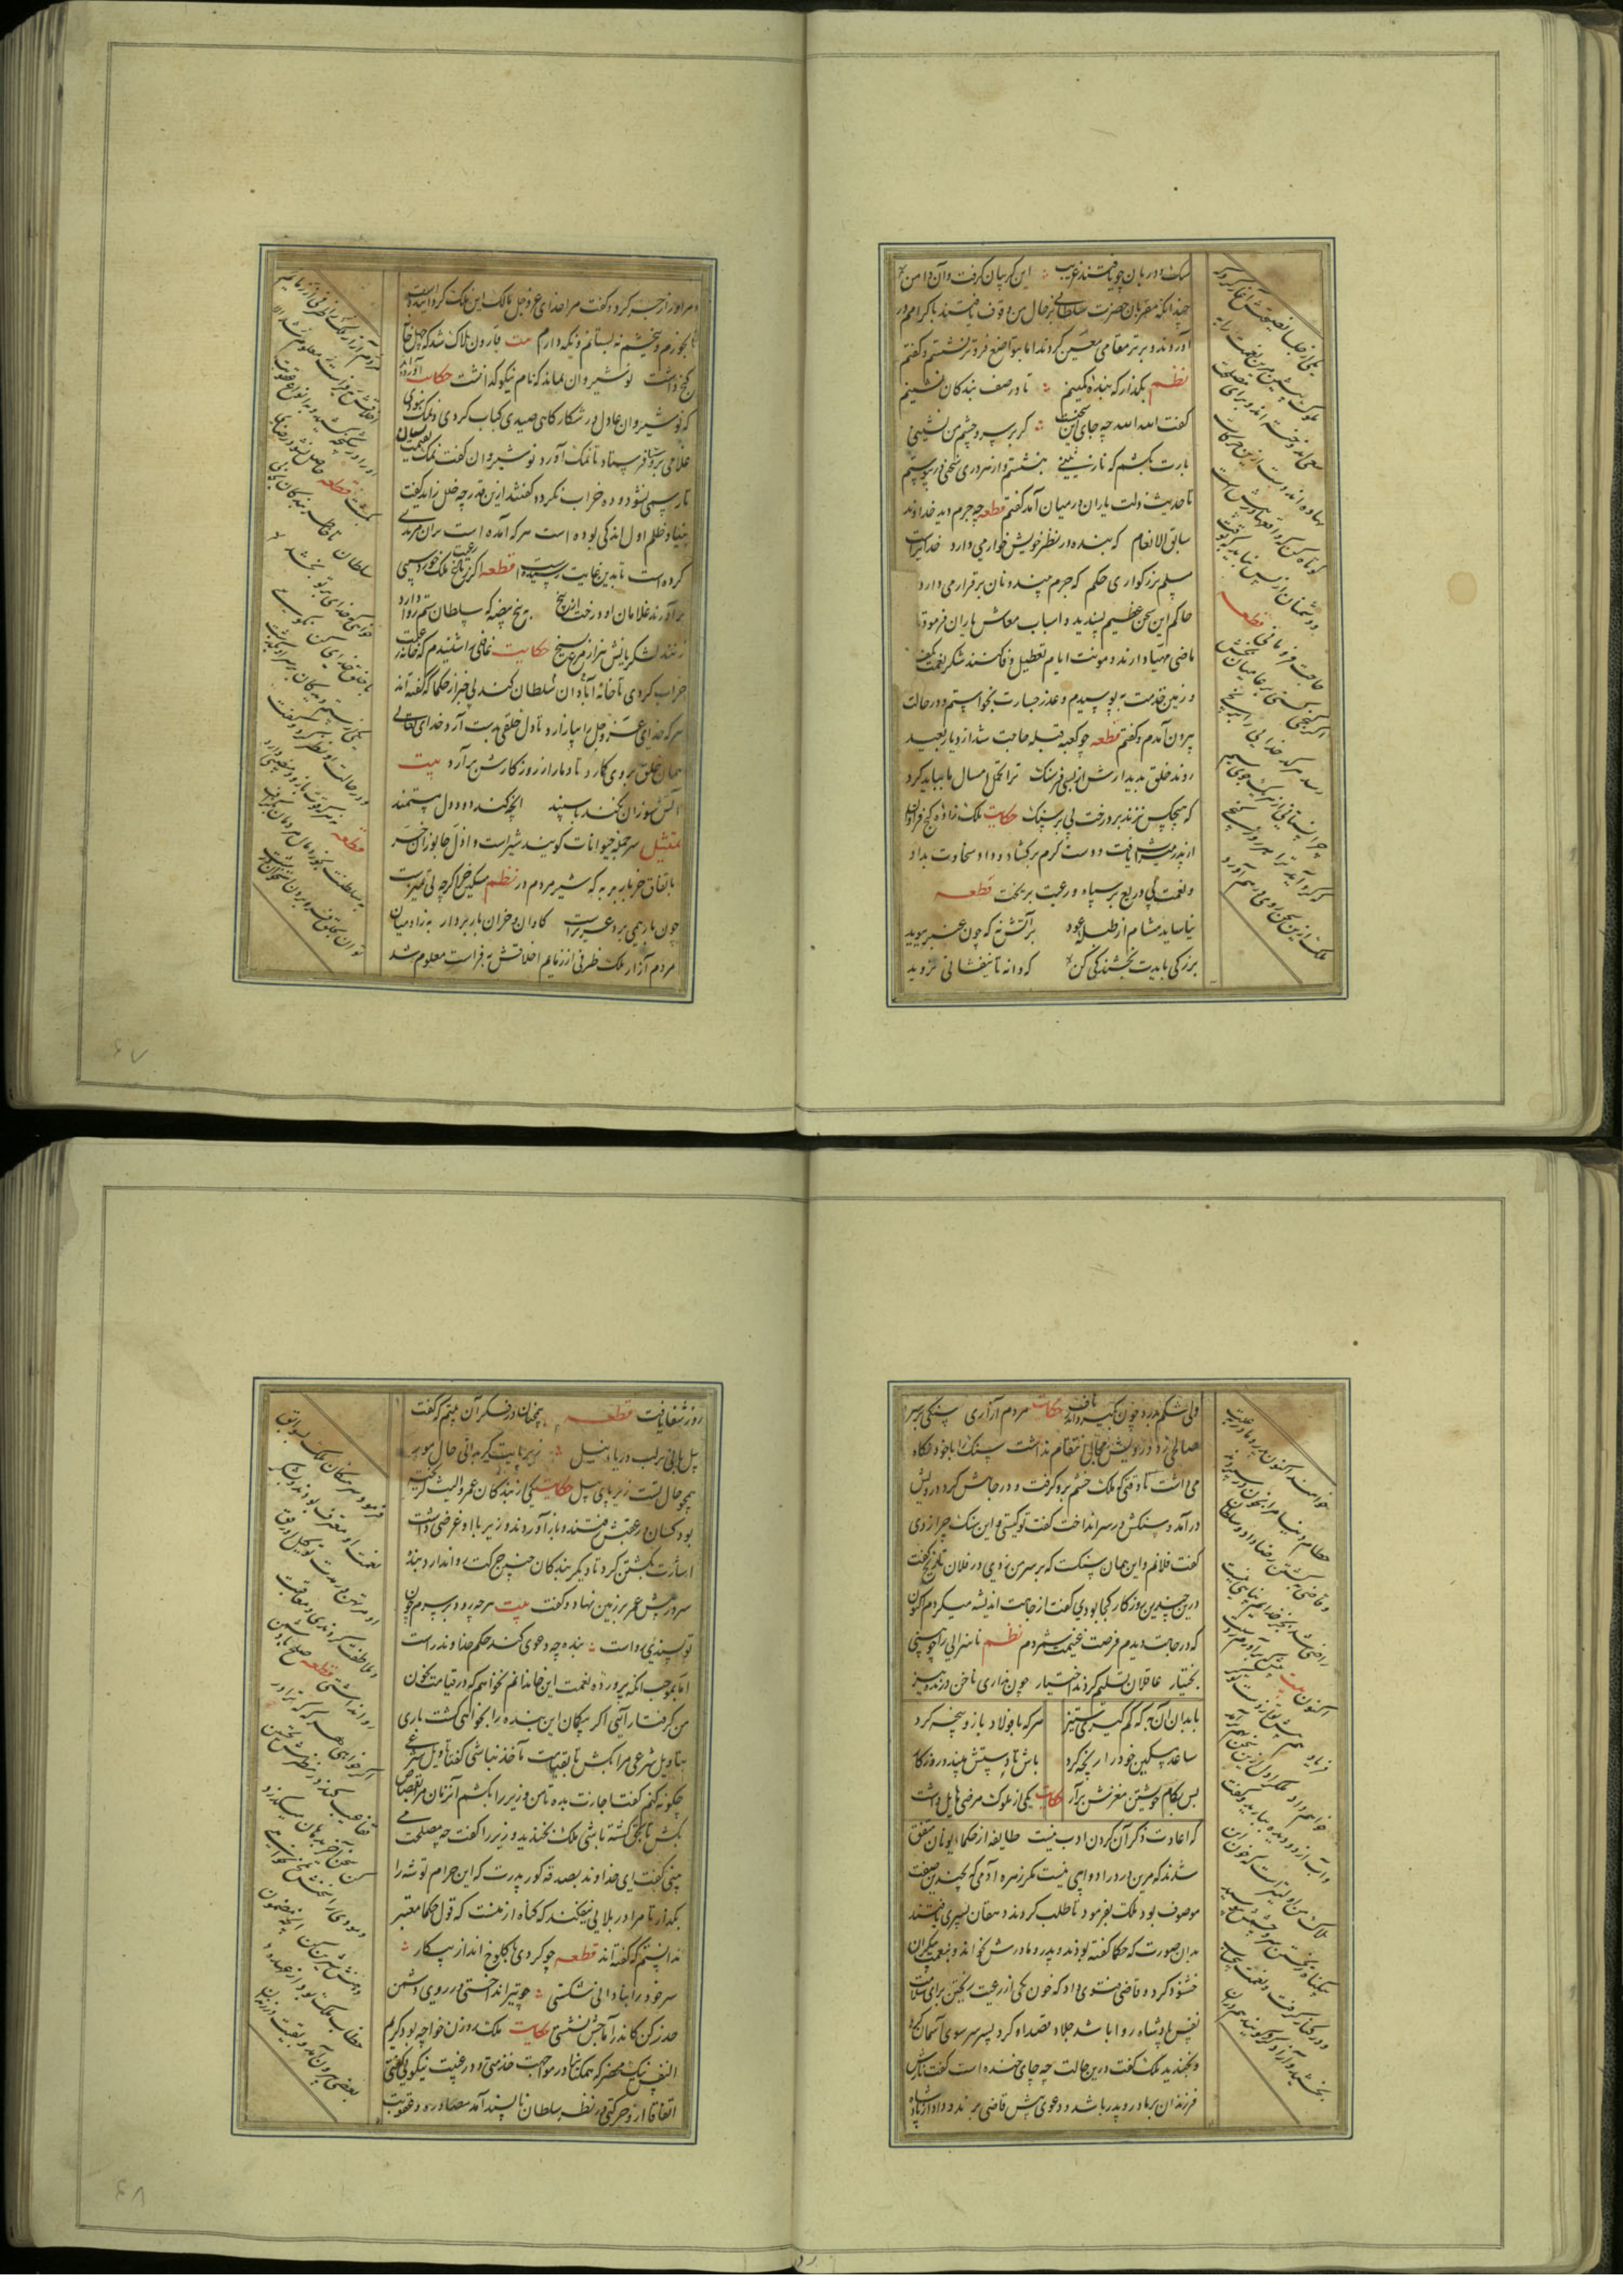 سک و دربان چو یافتند غریب این گریبان گرفت و آن دامن
چندانکه مقربان حضرت سلطانی بر حال من وقوف یافتند باکرامم در
آوردند و برتر مقامی معین کردند اما بتواضع فروتر نشستم و گفتم
نظم بگذار که بنده کمینم تا در صف بندگان نشینم
گفت الله الله چه جای این سخنست گر بر سر و چشم من نشینی
بارت بکشم که نازنینی بنشستم و از هر دری سخنی در پیوستم
تا حدیث ذلت یاران در میان آمد گفتم قطعه چه جرم دید خداوند
سابق الانعام که بنده در نظر خویش خوار می دارد خدایراست
مسلم بزرگواری و حکم که جرم بیند و نان برقرار می دارد
حاکم این سخن عظیم پسندید و اسباب معاش یاران فرمود تا
ماضی مهیا دارند و مونت ایام تعطیل وفا کنند شکر نعمت بگفتم
و زمین خدمت ببوسیدم و عذر جسارت بخواستم و در حالت
بیرون آمدم و گفتم قطعه چو کعبه قبله حاجت شد از دیار بعید
روند خلق بدیدارش از بسی فرسنگ ترا تحمل امثال ما بباید کرد
که هیچکس نزند بر درخت بی بر سنگ حکایت ملک زاده گنج فراوان
از پدر میراث یافت و دست کرم برگشاد و داد سخاوت بداد
و نعمت بی دریغ بر سپاه و رعیت بریخت قطعه
نیاساید مشام از طبله عود بر آتش نه که چون عنبر ببوید
بزرگی بایدت بخشندگی کن که دانه تا نیفشانی نروید
یکی از جلسا نصیحتش آغاز کرد که
ملوک پیشین مرین نعمت را به
سعی اندوخته اند و برای مصلحتی
نهاده اند دست ازین حرکات
کوتاه کن که واقعها در پیش است
و دشمنان از پس نباید که بوقت
حاجت فرو مانی قطعه
اگر گنجی کنی بر عامیان بخش
رسد هر کدخدایی را برنجی
چرا نستانی از هر یک جوی سیم
که گرد آید ترا هر روز گنجی
ملک ازین سخن روی درهم آورد
و مر او را زجر کرد و گفت مرا خدای عز و جل مالک این ملک گردانیده است
تا بخورم و ببخشم نه پاسبانم و نگه دارم بیت قارون هلاک شد که چهل خانه
گنج داشت نوشیروان نماند که نام نیکو گذاشت حکایت آورده اند
که نوشیروان عادل در شکارگاهی صیدی کباب کردی و نمک نبودی
غلامی بروستا فرستاد تا نمک آورد نوشیروان گفت نمک بقیمت بستان
تا رسمی نشود و ده خراب نگردد گفتند ازین قدر چه خلل زاید گفت
بنیاد ظلم اول اندکی بوده است هر که آمده است بران مزید
کرده است تا بدین غایت رسیده است قطعه اگر ز باغ رعیت ملک خورد سیبی
برآورند غلامان او درخت از بیخ به پنج بیضه که سلطان ستم روا دارد
زنند لشکریانش هزار مرغ بسیخ حکایت غافلی را شنیدم که خانه رعیت
خراب کردی تا خانه آبادان سلطان کند بی خبر از حکما که گفته اند
هر که خدای عز و جل را بیازارد تا دل خلقی بدست آرد خدای تعالی
همان خلق بروی گمارد تا دمار از روزگارش برآرد بیت
آتش سوزان نکند با سپند آنچه کند دود دل مستمند
تمثیل سر جمله حیوانات گویند شیر است و اذل جانوران خر
باتفاق خر باربر به که شیر مردم در نظم مسکین خر اگر چه بی تمیزست
چون بار همی برد عزیز است گاوان و خران باربردار به ز آدمیان
مردم آزار ملک طرفی از ذمایم اخلاقش بفراست معلوم شد
او را در شکنجه کشید و بانواع عقوبت
بکشت قطعه حاصل نشود رضای
سلطان تا خاطر بندگان نجویی
خواهی که خدای بر تو بخشد
با خلق خدای کن نکویی
یکی از ستم دیدگان بر سر او بگذشت
و در حالت او نظر کرد و گفت
قطعه نه هر که قوت بازوی منصبی دارد
بسلطنت بخورد مال مردمان بگزاف
ولی شکم بدرد چون بگیرد اندر ناف حکایت مردم آزاری سنگی بر سر
صالحی زد درویش را مجال انتقام نداشت سنگ را با خود نگاه
می داشت تا وقتی که ملک خشم برو گرفت و در چاهش کرد درویش
درآمد و سنگش در سر انداخت گفت تو کیستی و این سنگ چرا زدی
گفت فلانم و این همان سنگست که بر سر من زدی در فلان تاریخ گفت
درین چندین روزگار کجا بودی گفت از جاهت اندیشه میکردم اکنون
که در چاهت دیدم فرصت غنیمت شمردم نظم ناسزایی را چو بینی
بختیار عاقلان تسلیم کردند اختیار چون نداری ناخن درنده تیز
با بدان آن به که کم گیری ستیز هر که با پولاد بازو پنجه کرد
ساعد مسکین خود را رنجه کرد باش تا دستش ببندد روزگار
پس بکام خویشتن مغزش برآر حکایت یکی از ملوک مرضی هایل داشت
که اعادت ذکر آن کردن ادب نیست طایفه از حکماء یونان متفق
شدند که مرین درد را دوایی نیست مگر زهره آدمی که بچندین صفت
موصوف بود ملک بفرمود تا طلب کردند دهقان پسری یافتند
بدان صورت که حکما گفته بودند و پدر و مادرش بخواند و بنعمت بیکران
خشنود کرد و قاضی فتوی داد که خون یکی از رعیت ریختن برای سلامت
نفس پادشاه روا باشد جلاد قصد او کرد پسر سر سوی آسمان کرد
و بخندید ملک گفت درین حالت چه جای خنده است گفت ناز
فرزندان بر مادر و پدر باشد و دعوی پیش قاضی برند و داد از پادشاه
خواهند اکنون پدر و مادر بعلت
حطام دنیا مرا بخون در سپردند
و قاضی بکشتن رضا داد و سلطان
اکنون بیت پیش که برآورم ز دستت
فریاد هم پیش تو از دست تو می
خواهم داد ملک را دل ازین سخن بهم برآمد
و آب در دیده بیاورد و گفت
هلاک من اولیتر است که خون
بیگناه ریختن سر و چشمش ببوسید
و در کنار گرفت و نعمت بیحساب
بخشید و آزاد کرد گویند هم در آن
روز شفا یافت قطعه همچنان در فکر آن بیتم که گفت
پیل بانی بر لب دریاء نیل زیر پایت گر بدانی حال مور
همچو حال تست زیر پای پیل حکایت یکی از بندگان عمرو لیث گریخته
بود کسان در عقبش رفتند و باز آوردند وزیر با او غرضی داشت
اشارت بکشتن کرد تا دیگر بندگان چنین حرکت روا ندارد بنده
سر پیش عمر بر زمین نهاد و گفت بیت هر چه رود بر سرم چون
تو پسندی رواست بنده چه دعوی کند حکم خداوند راست
اما بموجب آنکه پرورده نعمت این خاندانم نخواهم که در قیامت بخون
من گرفتار آیی اگر بیگمان این بنده را بخواهی کشت باری
بتاویل شرعی مرا بکش تا بقیامت ماخوذ نباشی گفتا تاویل شرعی
چگونه کنم گفت اجازت بده تا من وزیر را بکشم آنزمان مرا بقصاص
بکش تا بحق کشته باشی ملک بخندید وزیر را گفت چه مصلحت می
بینی گفت ای خداوند بصدقه گور پدرت که این حرام توشه را
بگذار تا مرا در بلایی نیفکند که گناه از منست که قول حکما معتبر
ندانستم که گفته اند قطعه چو کردی با کلوخ انداز پیکار
سر خود را بنادانی شکستی چو تیر انداختی در روی دشمن
حذر کن کاندر آماجش نشستی حکایت ملک زوزن خواجه بود کریم
النفس نیک محضر که همگنان در مواجهت خدمتی و در غیبت نیکویی گفتی
اتفاقا ازو حرکتی در نظر سلطان ناپسند آمد مصادره و عقوبت
فرمود و سرهنگان ملک بسوابق
نعمت او معترف بودند و بشکر
او مرتهن در مدت توکیل او رفق
و ملاطفت کردندی و معاقبت
روا نداشتی قطعه صلح با دشمن
اگر خواهی هر گه که ترا در
قفا عیب کند در نظرش تحسین
کن سخن آخر بدهان میگذرد
موذی را سخنش تلخ نخواهی
دهنش شیرین کن آنچه مضمون
خطاب ملک بود از عهده
بعضی بیرون آمد و ببقیت در زندان